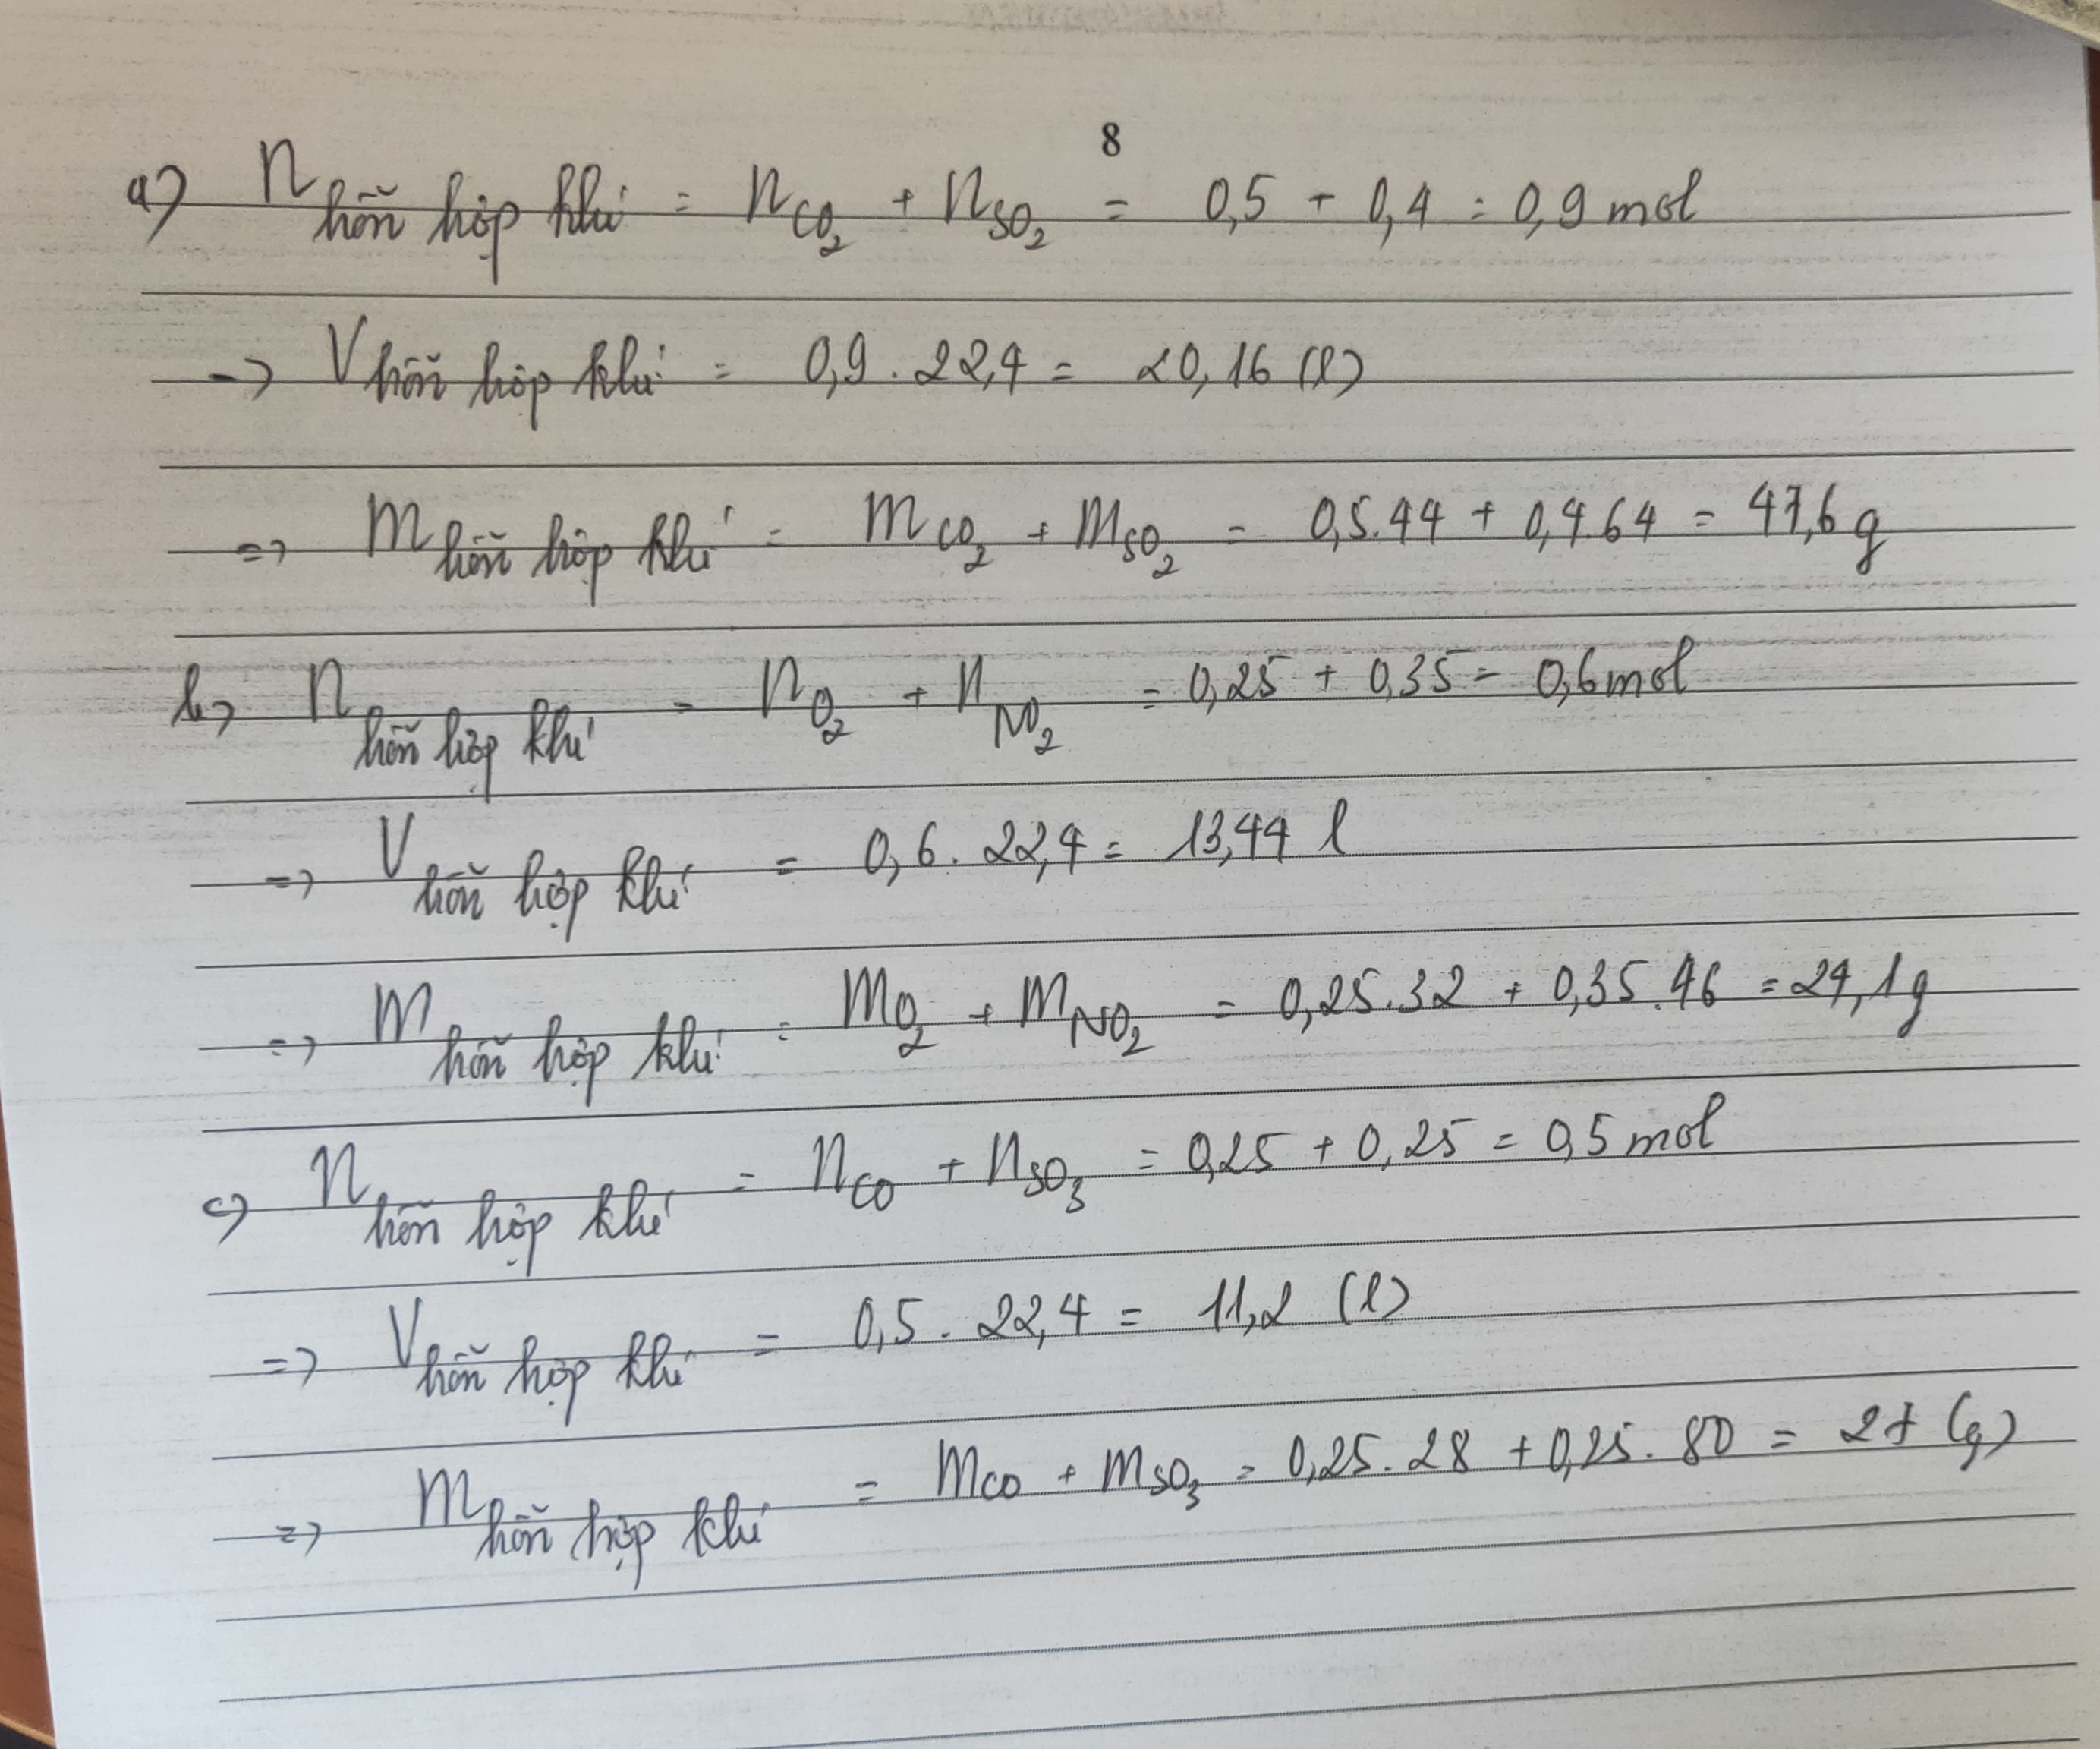 8
a) n hỗn hợp khí = nCO2 + nSO2 = 0,5 + 0,4 = 0,9 mol
-> V hỗn hợp khí = 0,9 . 22,4 = 20,16 (l)
=> m hỗn hợp khí = mCO2 + mSO2 = 0,5.44 + 0,4.64 = 47,6 g
b) n hỗn hợp khí = nO2 + nNO2 = 0,25 + 0,35 = 0,6 mol
=> V hỗn hợp khí = 0,6 . 22,4 = 13,44 l
=> m hỗn hợp khí = mO2 + mNO2 = 0,25.32 + 0,35.46 = 24,1 g
c) n hỗn hợp khí = nCO + nSO3 = 0,25 + 0,25 = 0,5 mol
=> V hỗn hợp khí = 0,5 . 22,4 = 11,2 (l)
=> m hỗn hợp khí = mCO + mSO3 = 0,25.28 + 0,25.80 = 27 (g)